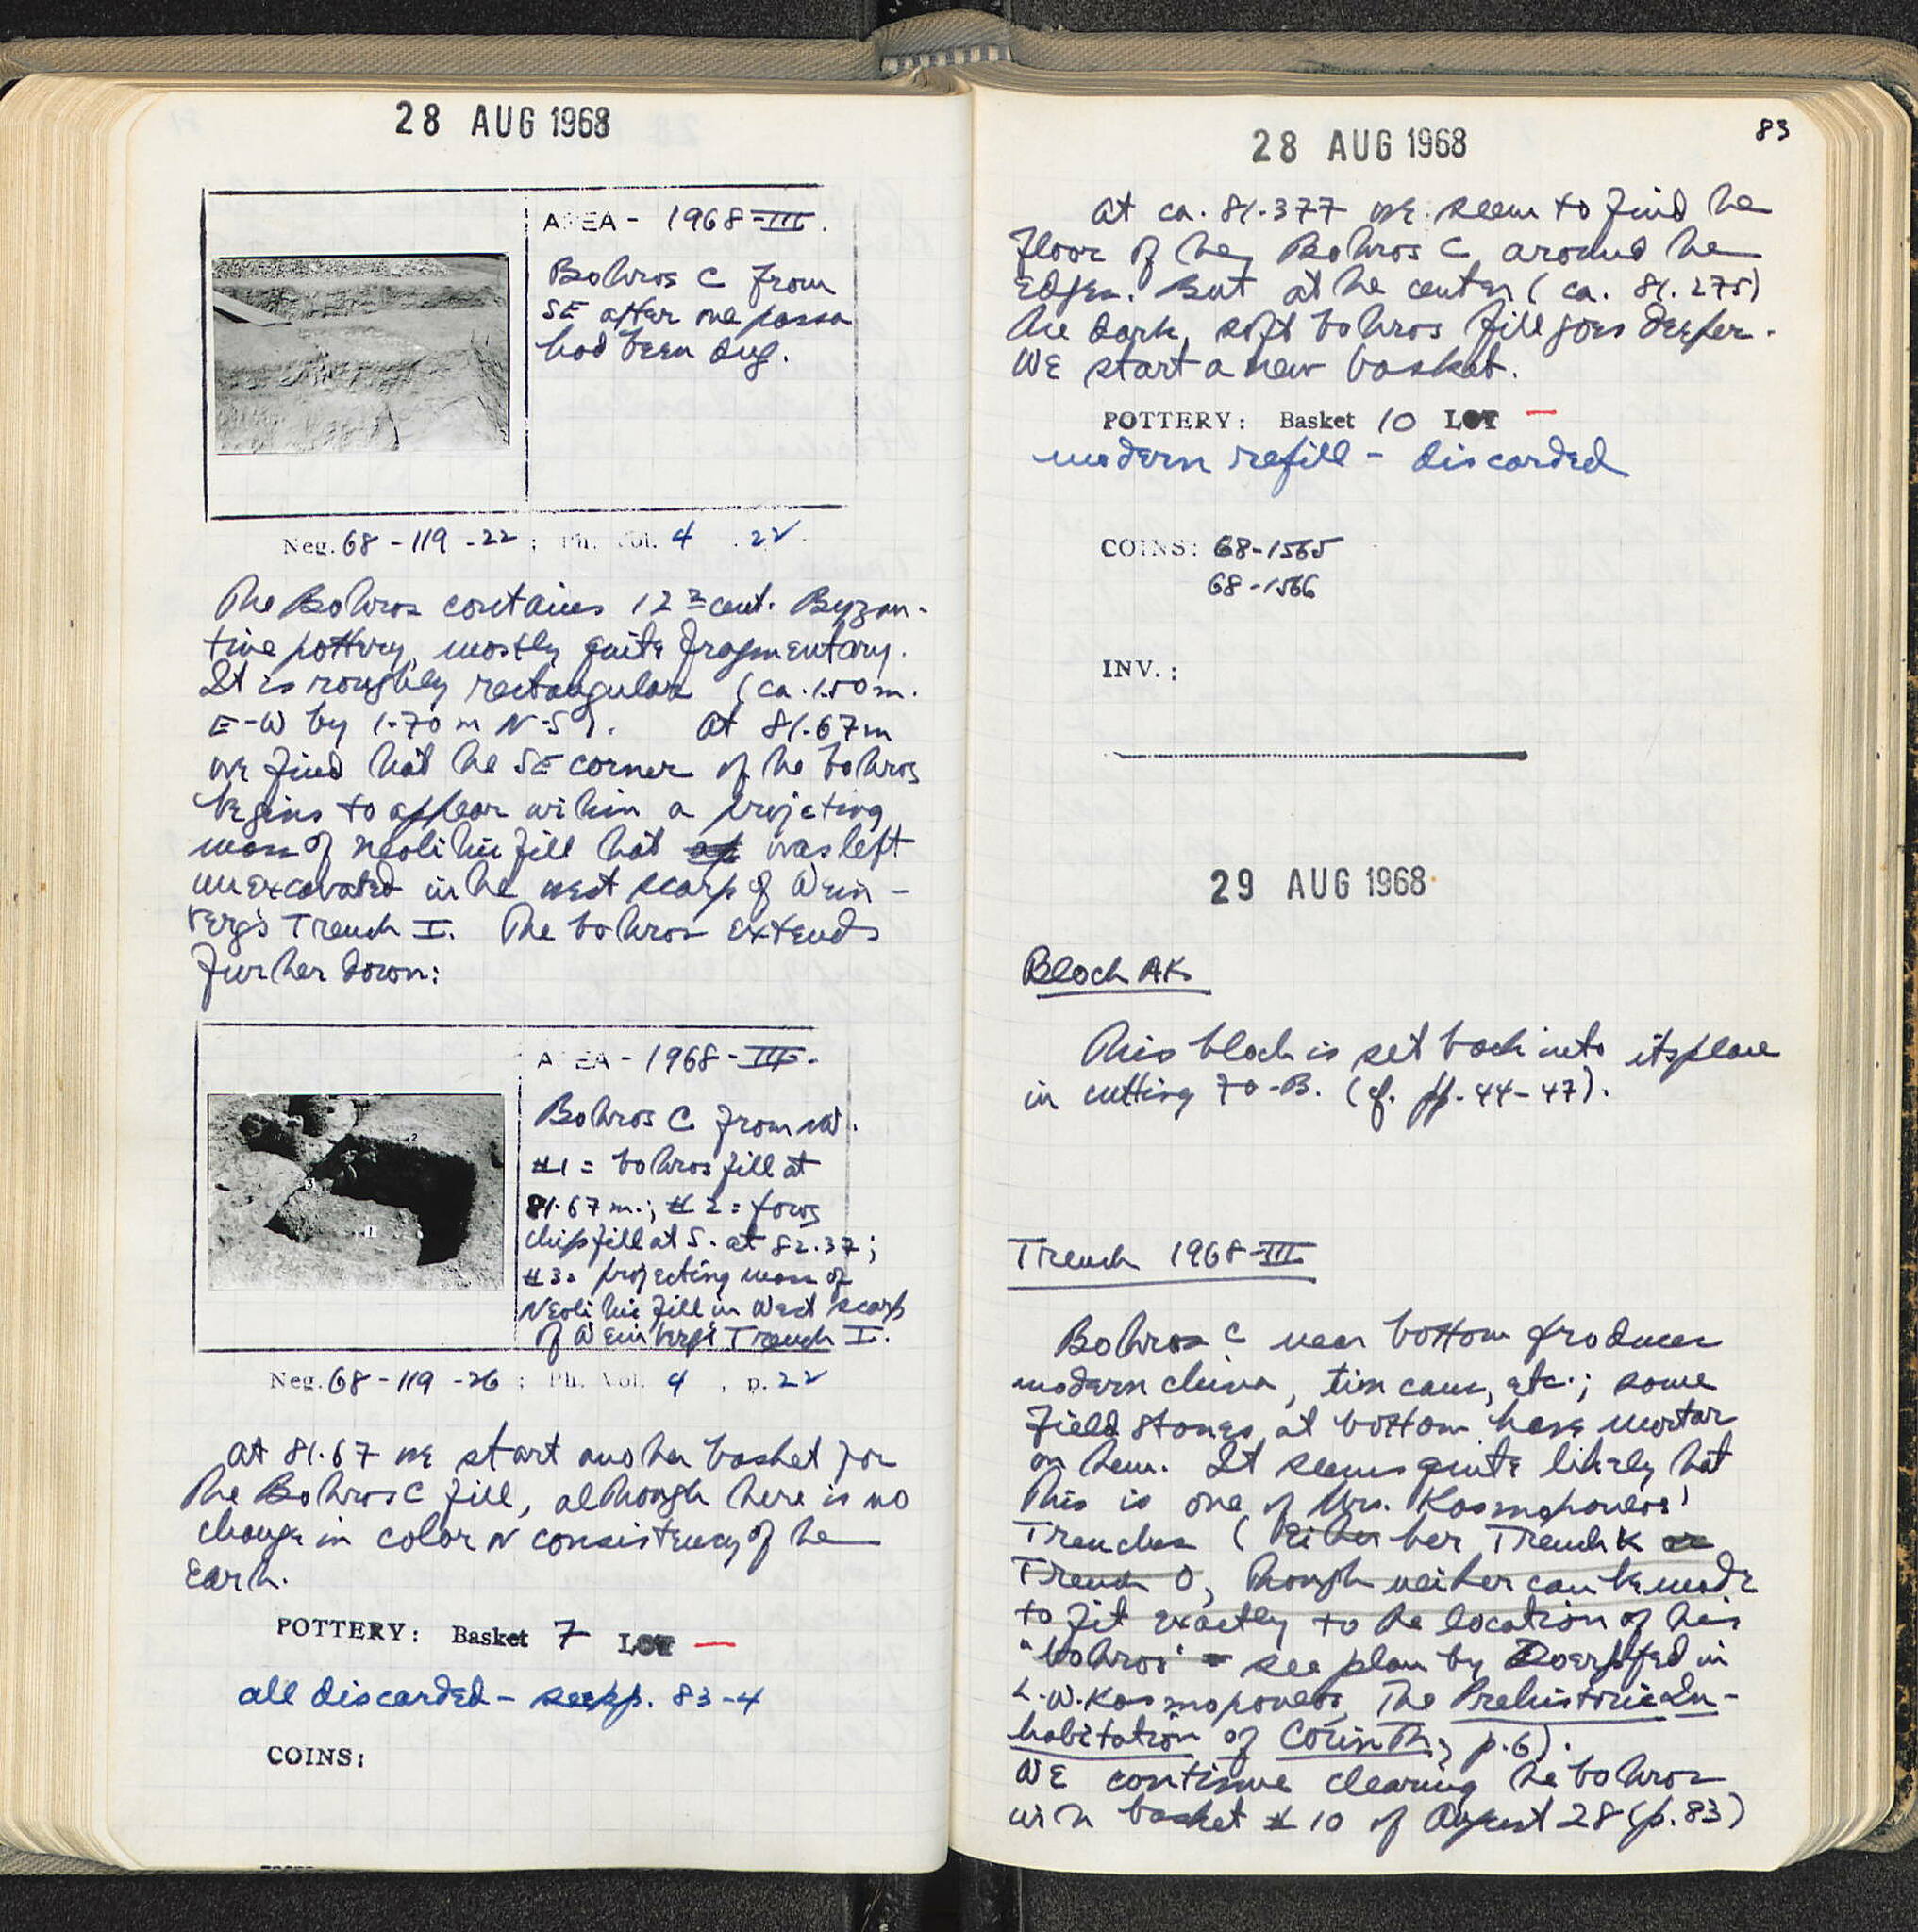 28 AUG 1968
AREA - 1968-III.
Bothros C from
SE after one passa
had been dug.
Neg. 68-119-22; Ph. Vol. 4 . 22
The Bothros contains 12th cent. Byzan-
tine pottery, mostly quite fragmentary.
It is roughly rectangular (ca. 1.50 m.
E-W by 1.70 m N-S). At 81.67m
we find that the SE corner of the bothros
begins to appear within a projecting
mass of neolithic fill that was left
unexcavated in the west scarp of Wein-
berg's Trench I. The bothros extends
further down:
AREA - 1968-III.
Bothros C from NW.
#1 = bothros fill at
81.67 m.; #2 = poros
chip fill at S. at 82.37;
#3= projecting mass of
Neolithic fill in West scarp
of Weinberg's Trench I.
Neg. 68-119-26; Ph. Vol. 4, p. 22
At 81.67 we start another basket for
the Bothros C fill, although there is no
change in color or consistency of the
Earth.
POTTERY: Basket 7 LOT —
all discarded - see pp. 83-4
COINS:
83
28 AUG 1968
At ca. 81.377 we seem to find the
floor of the Bothros C around the
edges. But at the center (ca. 81.275)
the dark, soft bothros fill goes deeper.
We start a new basket.
POTTERY: Basket 10 LOT —
modern refill - discarded
COINS: 68-1565
68-1566
INV.:
29 AUG 1968
Block AK
This block is set back into its place
in cutting 70-B. (cf. pp. 44-47).
Trench 1968-III
Bothros C near bottom produces
modern china, tin cans, etc.; some
field stones at bottom have mortar
on them. It seems quite likely that
this is one of Mrs. Kosmopoulos'
Trenches (Either her Trench K or
Trench O, though neither can be made
to fit exactly to the location of this
"bothros" - see plan by Doerpfeld in
L.W. Kosmopoulos, The Prehistoric In-
habitation of Corinth, p. 6).
We continue clearing the bothros
with basket #10 of August 28 (p. 83)